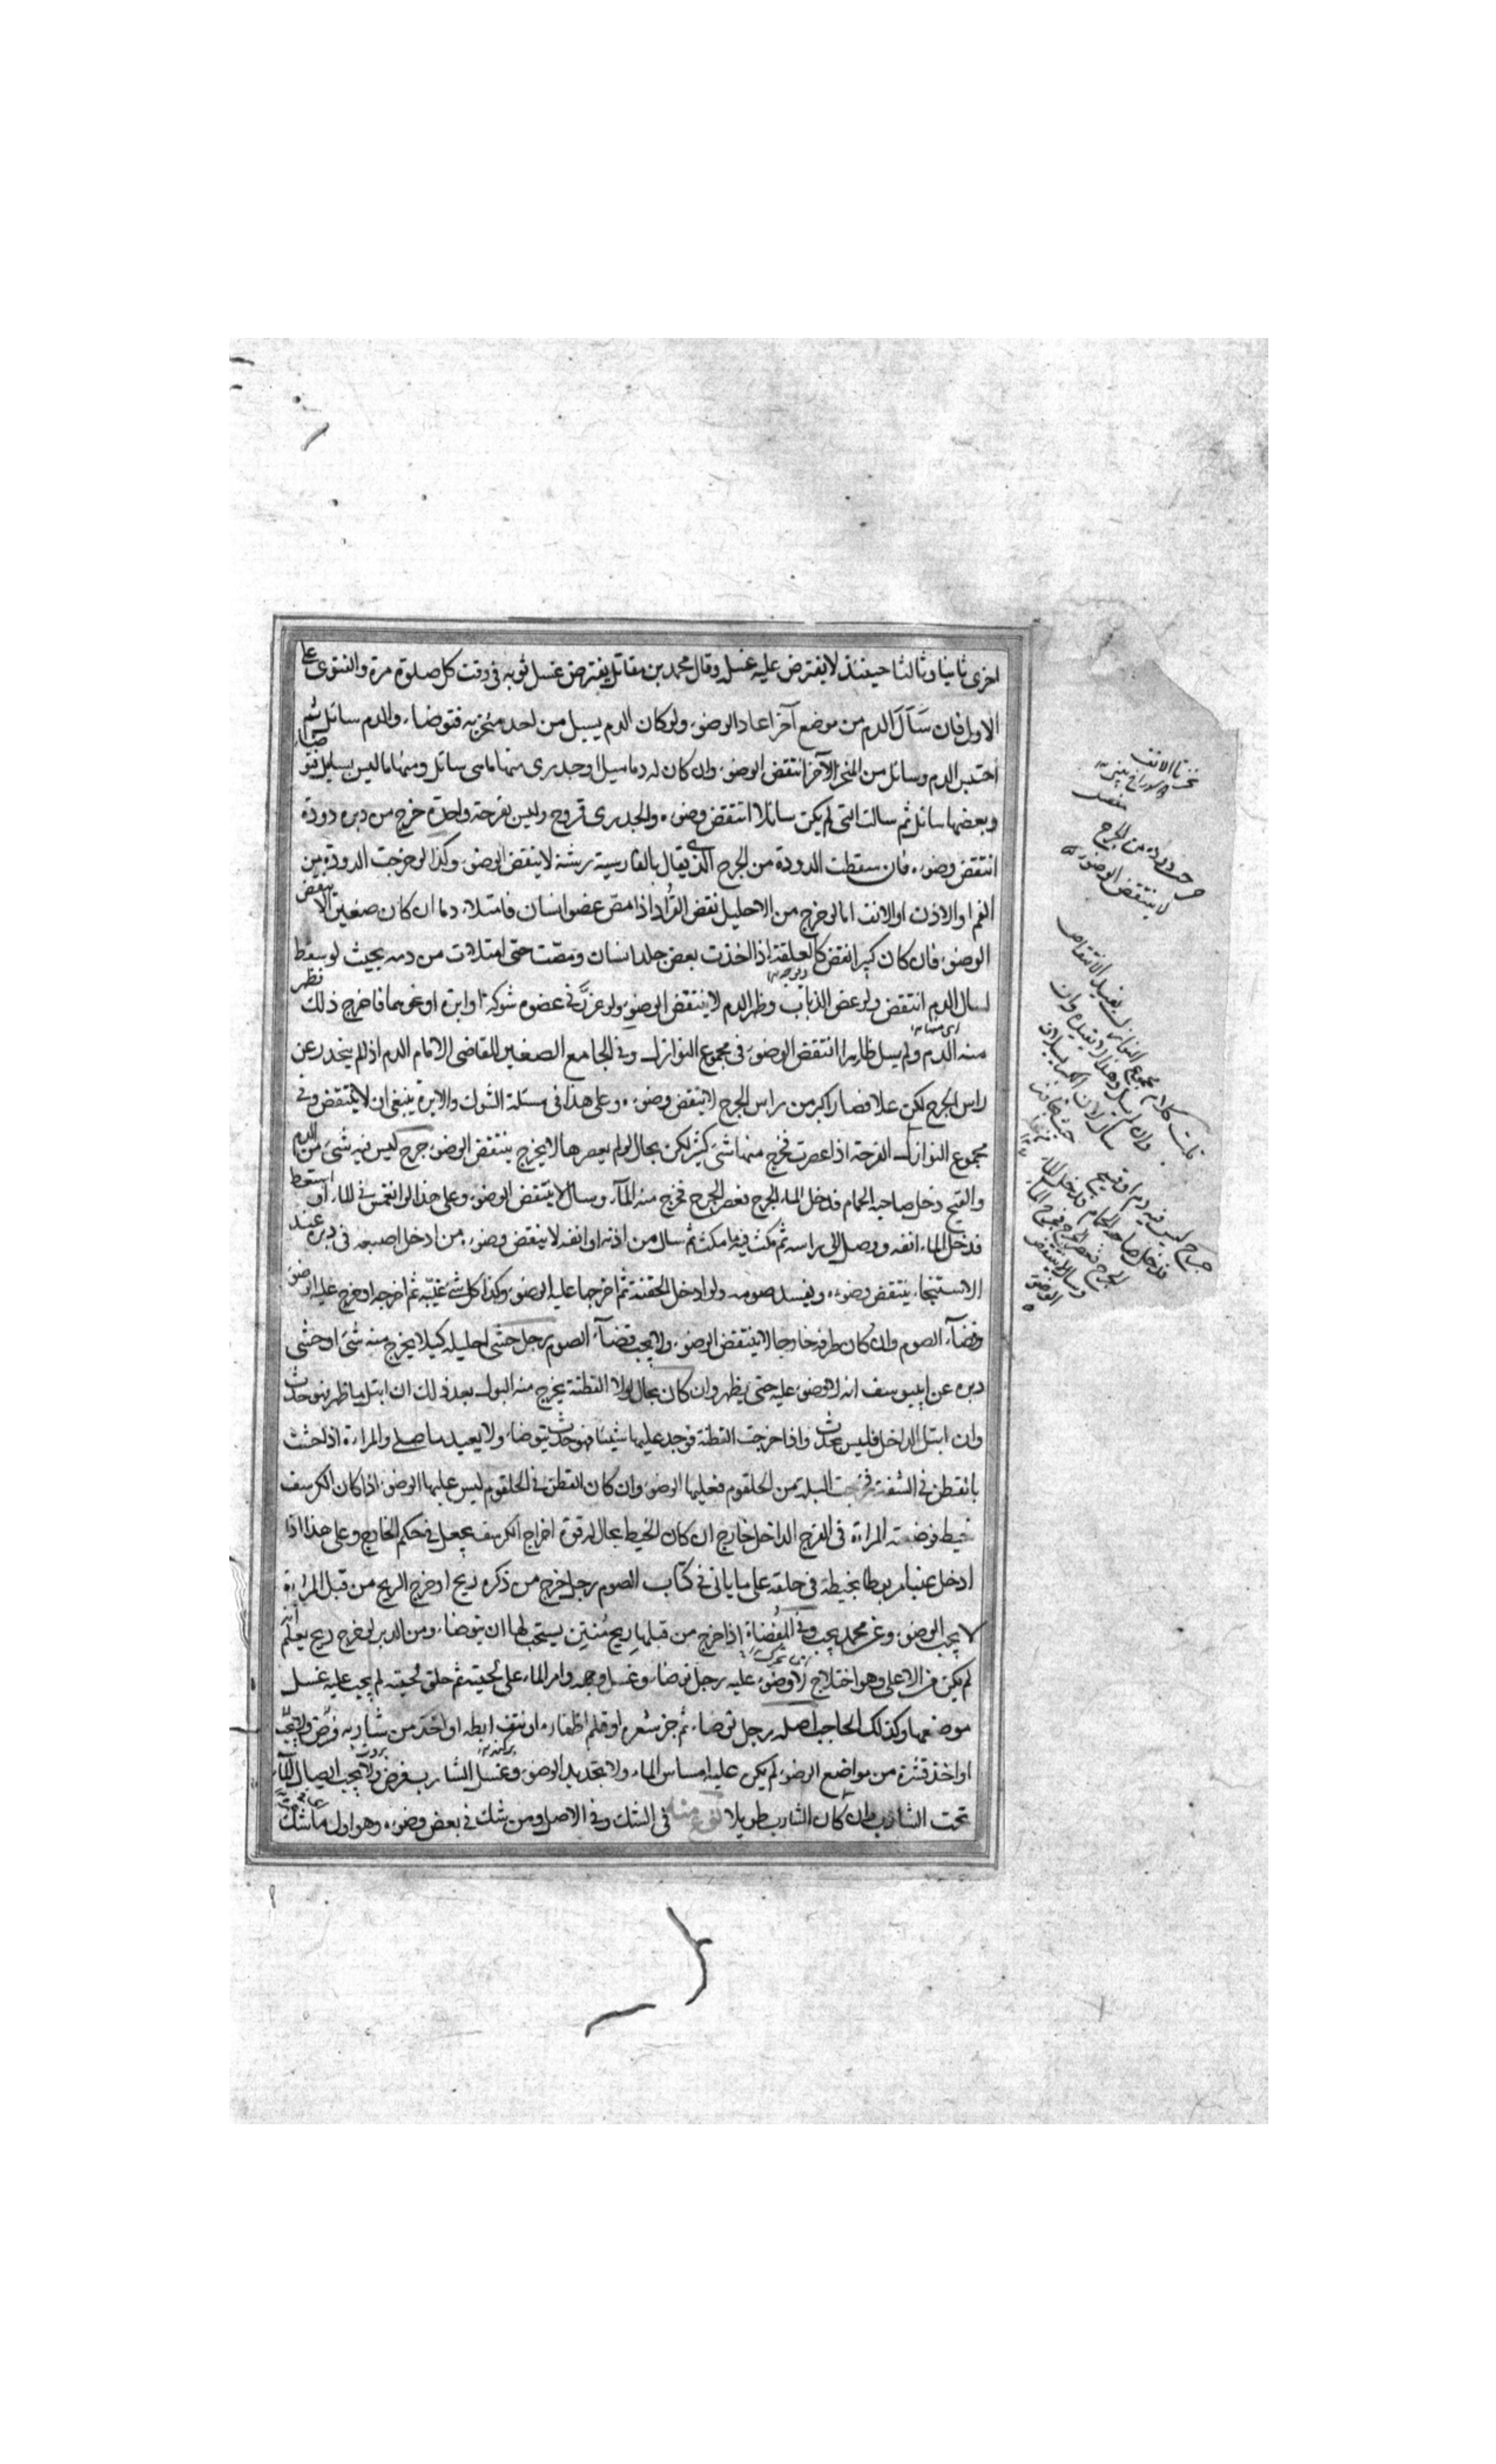 اخرى ثانيا وثالثا حينئذ لا يفترض عليه غسله وقال محمد بن مقاتل يفترض غسل ثوبه في وقت كل صلوة مرة والفتوى على
الاول فان سَآلَ الدم من موضع آخر اعاد الوضوء ولو كان الدم يسيل من احد منخريه فتوضاء والدم سائل ثم
احتبس الدم وسائل من المنخر الآخر انتقض الوضوء وان كان له دماميل او جدرى منها ما هى سائل ومنها ما ليس بسايل فتوضاء
وبعضها سائل ثم سالت التى لم يكن سائلا انتقض وضوءه والجدرى قروح وليس بقرحة واحدة خرج من دبره دودة
انتقض وضوءه فان سقطت الدودة من الجرح الذى يقال بالفارسية رشته لا ينقض الوضوء وكذا لو خرجت الدودة من
الفم او الاذن او الانف اما لو خرج من الاحليل نقض القراد اذا مص عضو انسان فامتلاء دما ان كان صغيرا لا ينقض
الوضوء فان كان كبيرا نقض كالعلقة اذا اخذت بعض جلد انسان ومصّت حتى امتلات من دمه بحيث لو سقط
لسال الدم انتقض ولو عض الذباب وظهر الدم لا ينتقض الوضوء ولو غرز في عضوه شوكة او ابرة او نحوهما فاخرج ذلك فظهر
منه الدم ولم يسل ظاهرا انتقض الوضوء فى مجموع النوازل وفي الجامع الصغير للقاضى الامام الدم اذا لم ينحدر عن
راس الجرح لكن علا فصار اكبر من راس الجرح لا ينتقض وضوءه وعلى هذا فى مسئلة الشوك والابرة ينبغى ان لا ينتقض وفي
مجموع النوازل القرحة اذا عصرت فخرج منها شئ كثير لكن بحال لو لم يعصرها لا يخرج ينتقض الوضوء جرح ليس فيه شئ من الدم
والقيح دخل صاحبه الحمام فدخل الماء الجرح فعصر الجرح فخرج منه المآء وسال لا ينتقض الوضوء وعلى هذا لو انغمس في الماء او استعط
فدخل الماء انفه ووصل الى راسه ثم مكث فيه ما مكث ثم سال من اذنه او انفه لا ينقض وضوءه من ادخل اصبعه فى دبره عند
الاستنجاء ينتقض وضوءه ويفسد صومه ولو ادخل الحقنة ثم اخرجها عليه الوضوء وكذا كل شئ غيّبه ثم اخرجه او خرج عليه الوضوء
وقضآء الصوم وان كان طرفه خارجا لا ينتقض الوضوء ولا يجب قضآء الصوم رجل حشى احليله كيلا يخرج منه شئ او حشى
دبره عن ابيوسف انه لا وضوء عليه حتى يظهر وان كان بحال لولا القطنة يخرج منه البول بعد ذلك ان ابتل ما ظهر فهو حدث
وان ابتل الداخل فليس بحدث واذا خرجت القطنة فوجد عليها شيئا فهو حدث يتوضاء ولا يعيد ما صلى والمراءة اذا حشت
بالقطن فى الشفة فخرجت البلة من الحلقوم فعليها الوضوء وان كان القطن فى الحلقوم ليس عليها الوضوء اذا كان الكرسف
بخيط فوضعته المراءة فى الفرج الداخل خارج ان كان الخيط بحال له قوة اخراج الكرسف يجعل فى حكم الخارج وعلى هذا اذا
ادخل عنبا مربوطا بخيطة فى حلقه على ما ياتى فى كتاب الصوم رجل خرج من ذكره ريح او خرج الريح من قبل المراءة
لا يجب الوضوء وعن محمد يجب وفي المفضاة اذا خرج من قبلها ريح مُنتن يستحب لها ان يتوضاء ومن الدبر لو خرج ريح يعلم انه
لم يكن من الاعلى وهو اختلاج لا وضوء عليه رجل توضاء وغسل وجهه وامر الماء على لحيته ثم حلق لحيته لم يجب عليه غسل
موضعها وكذلك الحاجب اصله رجل توضاء ثم جز شعره او قلم اظفاره او نتف ابطه او اخذ من شاربه
او اخذ قشرة من مواضع الوضوء لم يكن عليه امساس الماء ولا تجديد الوضوء وغسل الشارب فرض ولا يجب ايصال المآء
تحت الشارب وان كان الشارب طويلا نوع منه فى الشك وفي الاصل ومن شك في بعض وضوءه وهو اول ما شك
خرج دودة من الجرح
لا ينتقض الوضوء
جرح ليس فيه دم او قيح
فدخل صاحبه الحمام فدخل الماء
الجرح فعصر الجرح فخرج الماء
وسال لا ينتقض
الوضوء